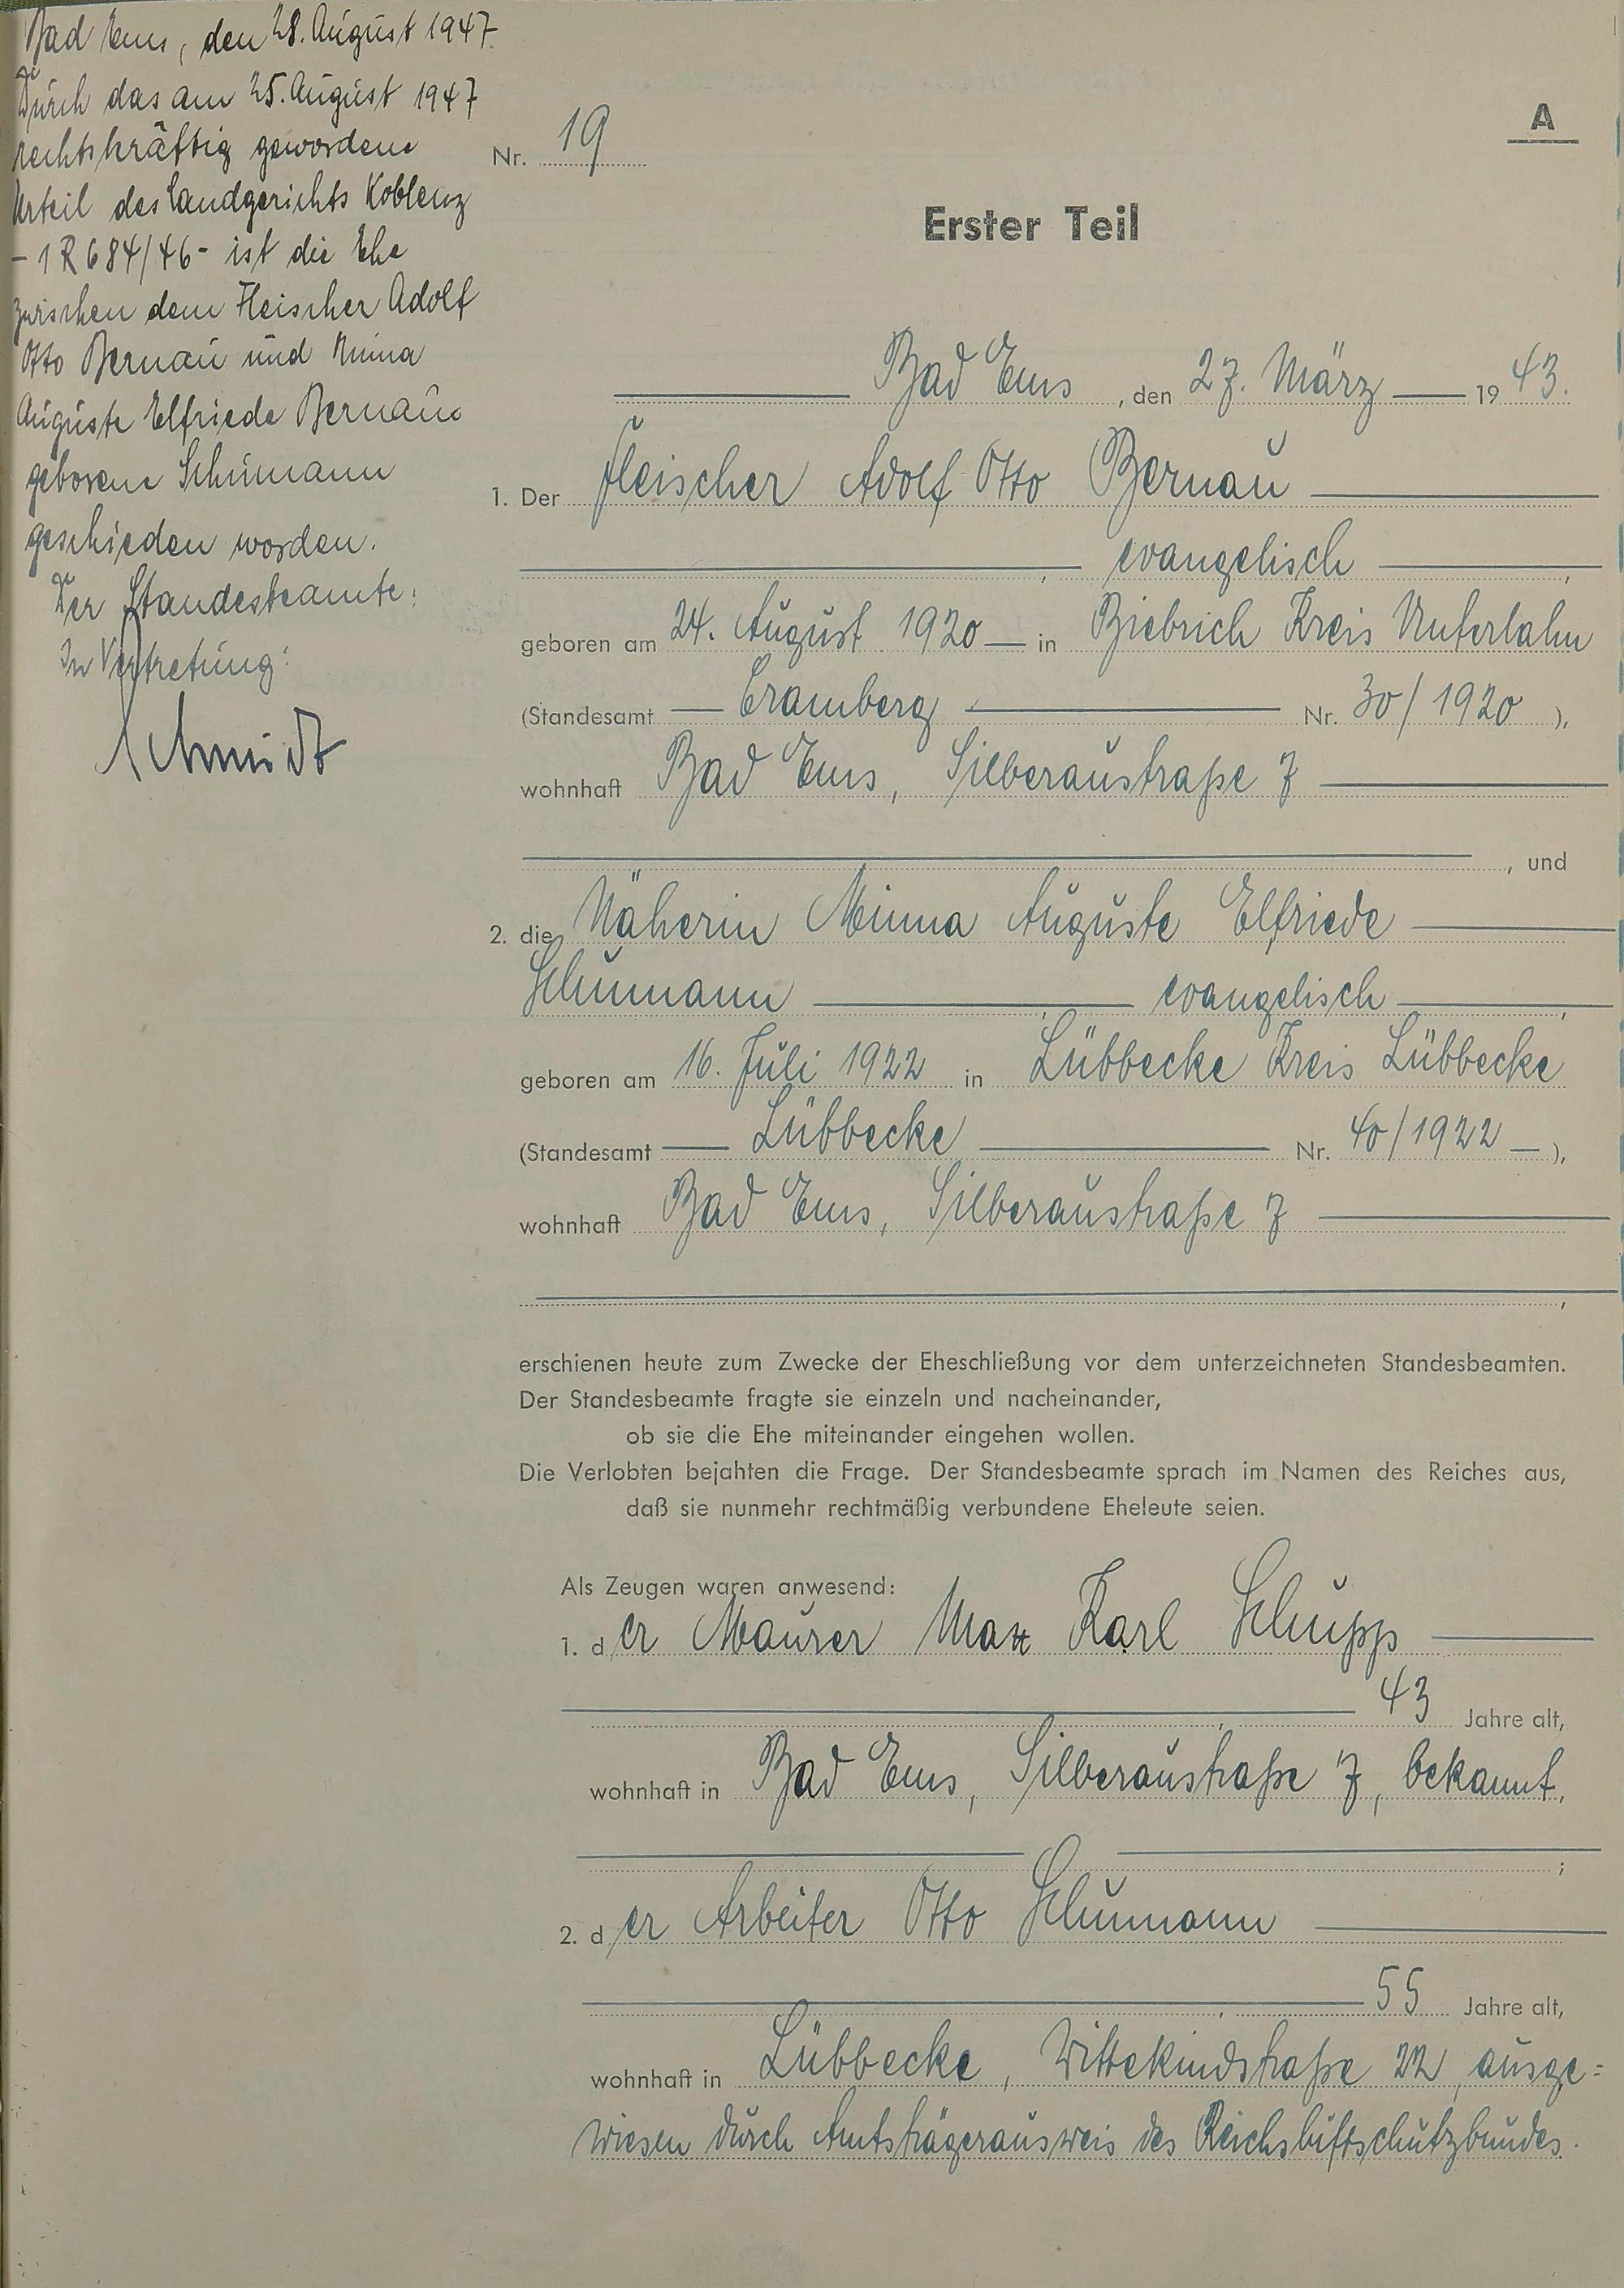 Bad Ems, den 28. August 1947.
Durch das am 25. August 1947
rechtskräftig gewordene
Urteil des Landgerichts Koblenz
- 1 R 684/46 - ist die Ehe
zwischen dem Fleischer Adolf
Otto Bernau und Minna
Auguste Elfriede Bernau
geborene Schumann
geschieden worden.
Der Standesbeamte:
In Vertretung:
Schmidt
A
Nr. 19
Erster Teil
Bad Ems, den 27. März 1943.
1. Der Fleischer Adolf Otto Bernau
, evangelisch ,
geboren am 24. August 1920 in Biebrich Kreis Unterlahn
(Standesamt Cramberg Nr. 30/1920 ),
wohnhaft Bad Ems, Silberaustraße 7
, und
2. die Näherin Minna Auguste Elfriede
Schumann , evangelisch ,
geboren am 16. Juli 1922 in Lübbecke Kreis Lübbecke
(Standesamt Lübbecke Nr. 40/1922 ),
wohnhaft Bad Ems, Silberaustraße 7
,
erschienen heute zum Zwecke der Eheschließung vor dem unterzeichneten Standesbeamten.
Der Standesbeamte fragte sie einzeln und nacheinander,
ob sie die Ehe miteinander eingehen wollen.
Die Verlobten bejahten die Frage. Der Standesbeamte sprach im Namen des Reiches aus,
daß sie nunmehr rechtmäßig verbundene Eheleute seien.
Als Zeugen waren anwesend:
1. der Maurer Max Karl Schupp
, 43 Jahre alt,
wohnhaft in Bad Ems, Silberaustraße 7, bekannt,
;
2. der Arbeiter Otto Schumann
, 55 Jahre alt,
wohnhaft in Lübbecke, Wittekindstraße 22, ausge=
wiesen durch Amtsträgerausweis des Reichsluftschutzbundes.